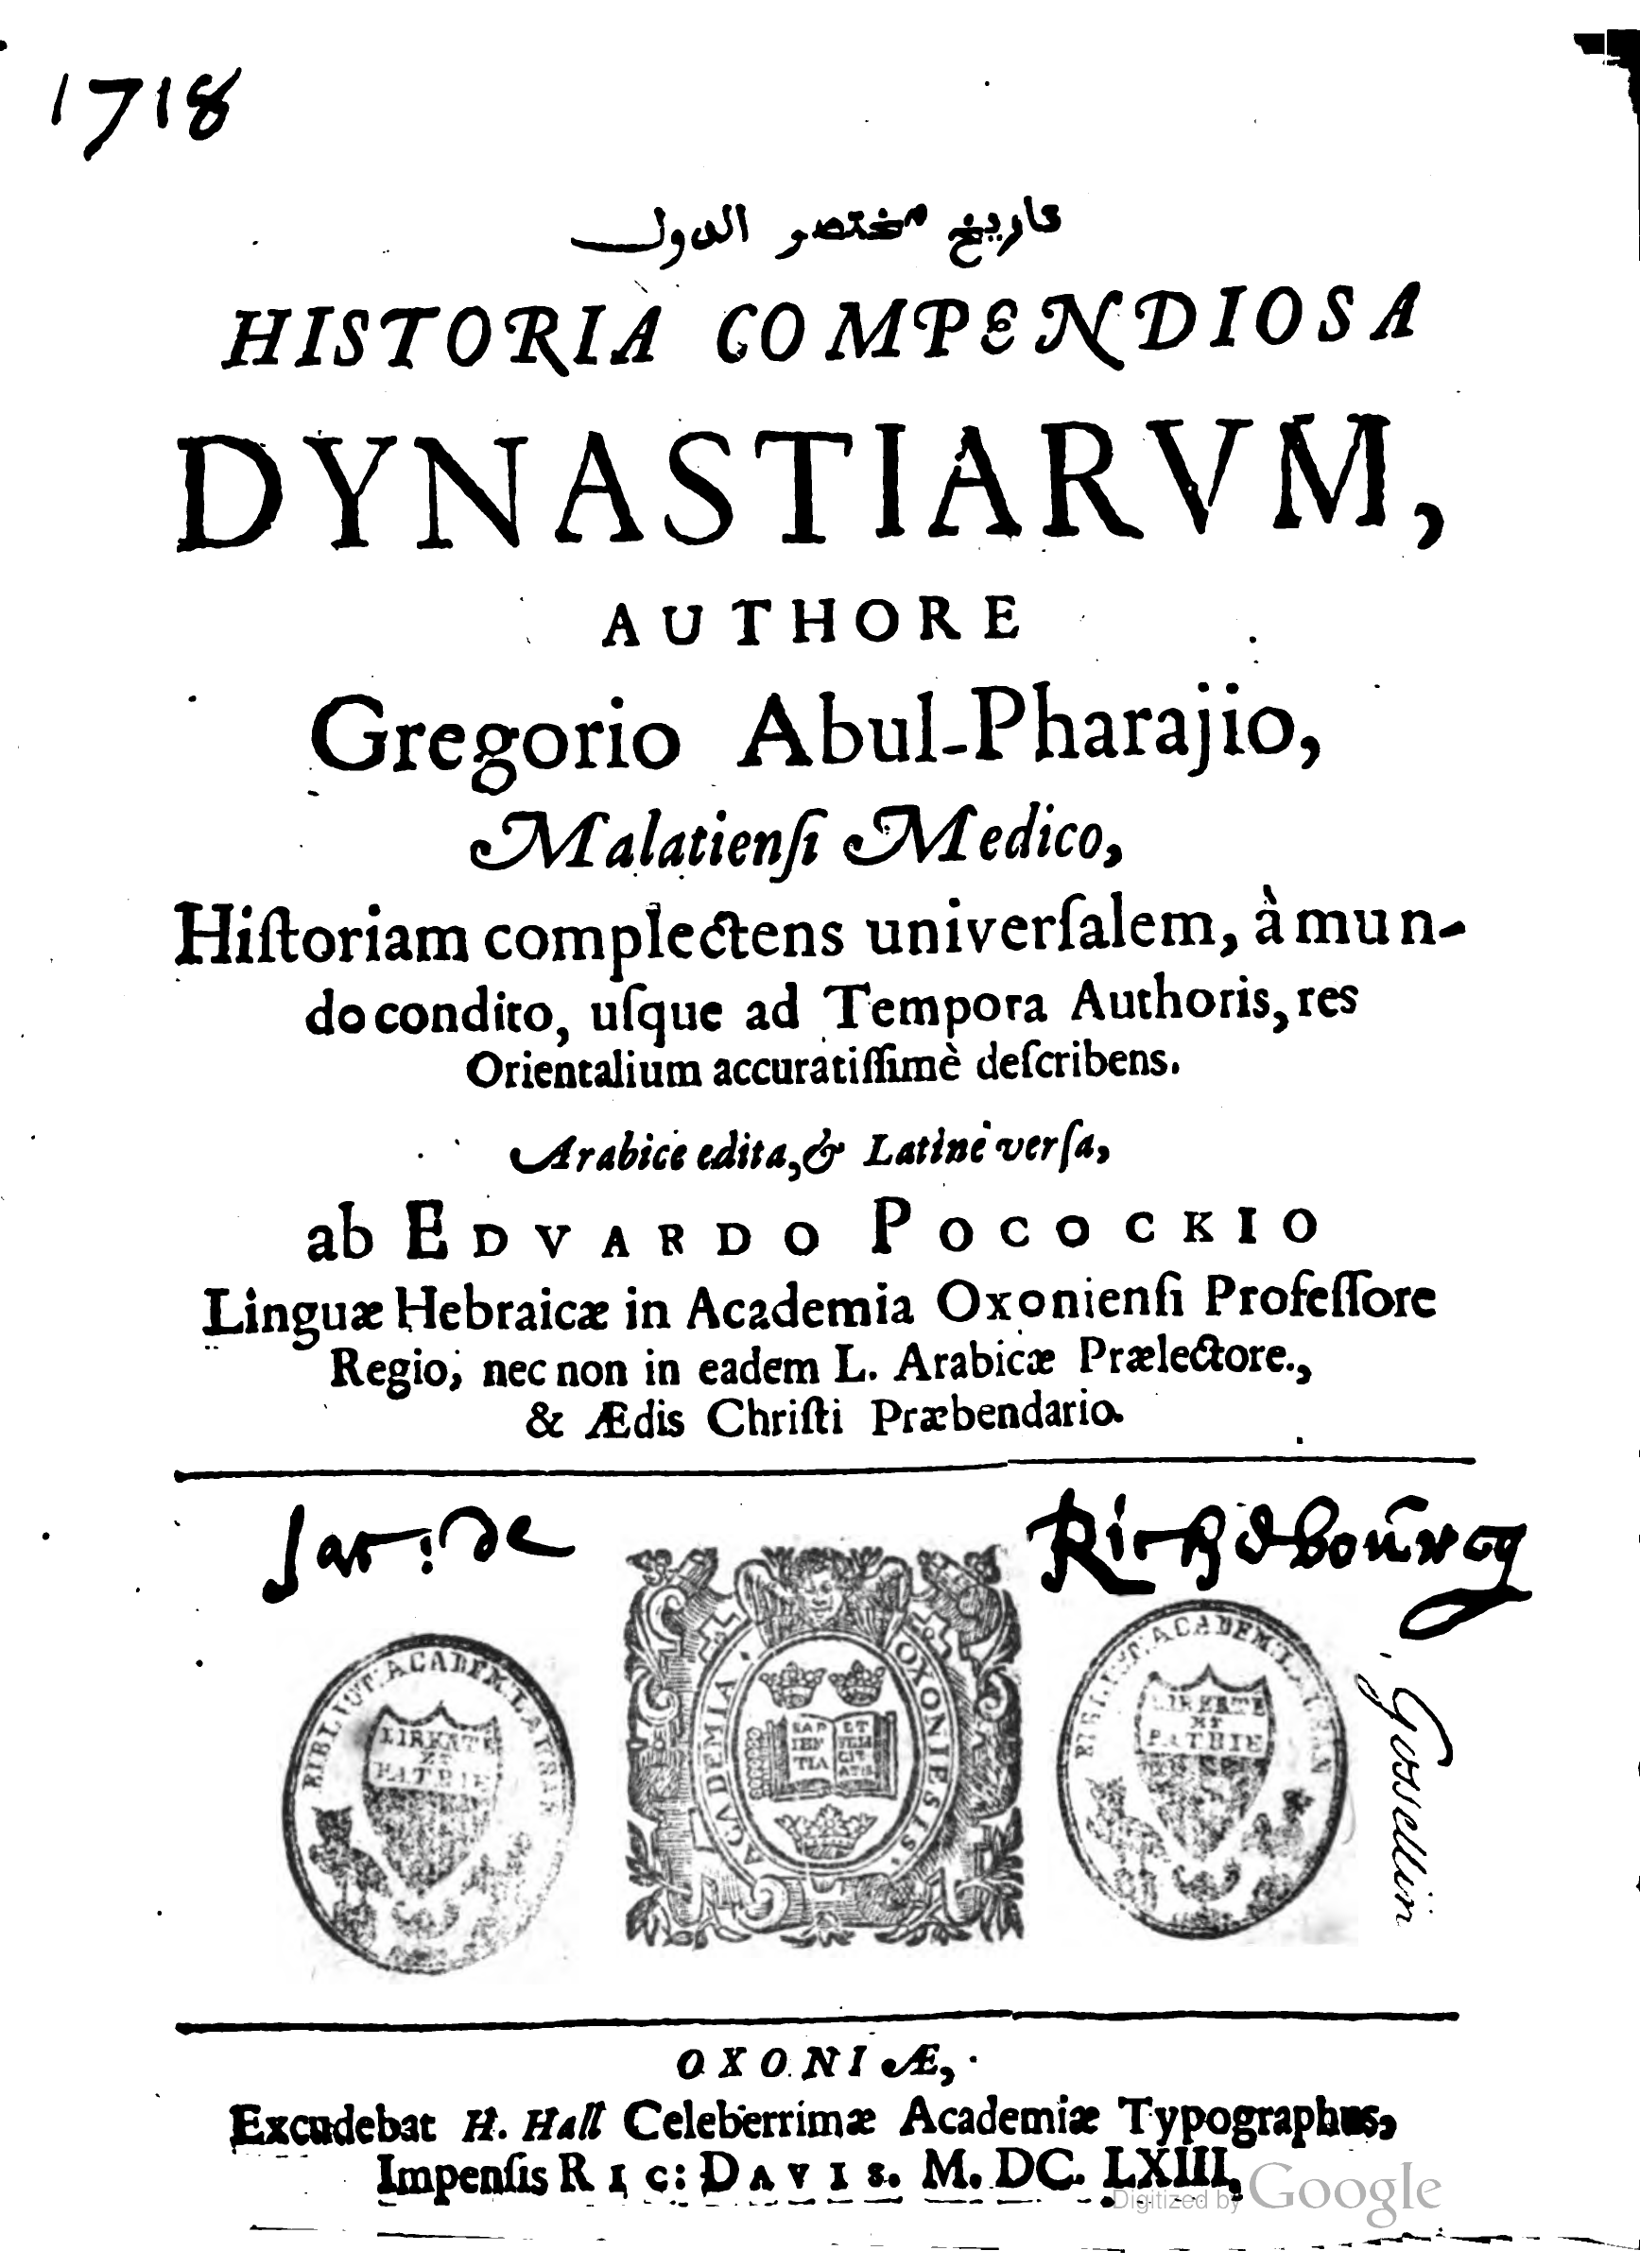 1718
تاريخ مختصر الدول
HISTORIA COMPENDIOSA
DYNASTIARVM,
AUTHORE
Gregorio Abul-Pharajio,
Malatienſi Medico,
Hiſtoriam complectens univerſalem, à mun-
do condito, uſque ad Tempora Authoris, res
Orientalium accuratiſſimè deſcribens.
Arabice edita, & Latinè verſa,
ab EDVARDO POCOCKIO
Linguæ Hebraicæ in Academia Oxonienſi Profeſſore
Regio, nec non in eadem L. Arabicæ Prælectore.,
& Ædis Chriſti Præbendario.
ACADEMIA OXONIENSIS.
SAP
IEN
TIA
ET
FELI
CIT
ATIS
LIBERTE
ET
PATRIE
LIBERTE
ET
PATRIE
Gossellin
OXONIÆ,
Excudebat H. Hall Celeberrimæ Academiæ Typographus,
Impenſis RIC: DAVIS. M. DC. LXIII,
Digitized by Google